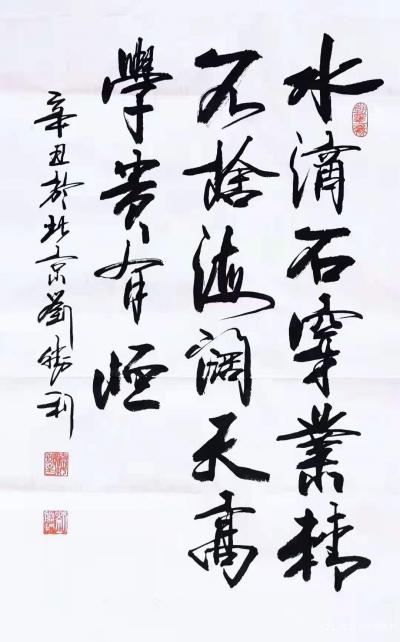 水滴石穿業精
不捨海闊天高
學貴有恒
辛丑於北京劉勝利